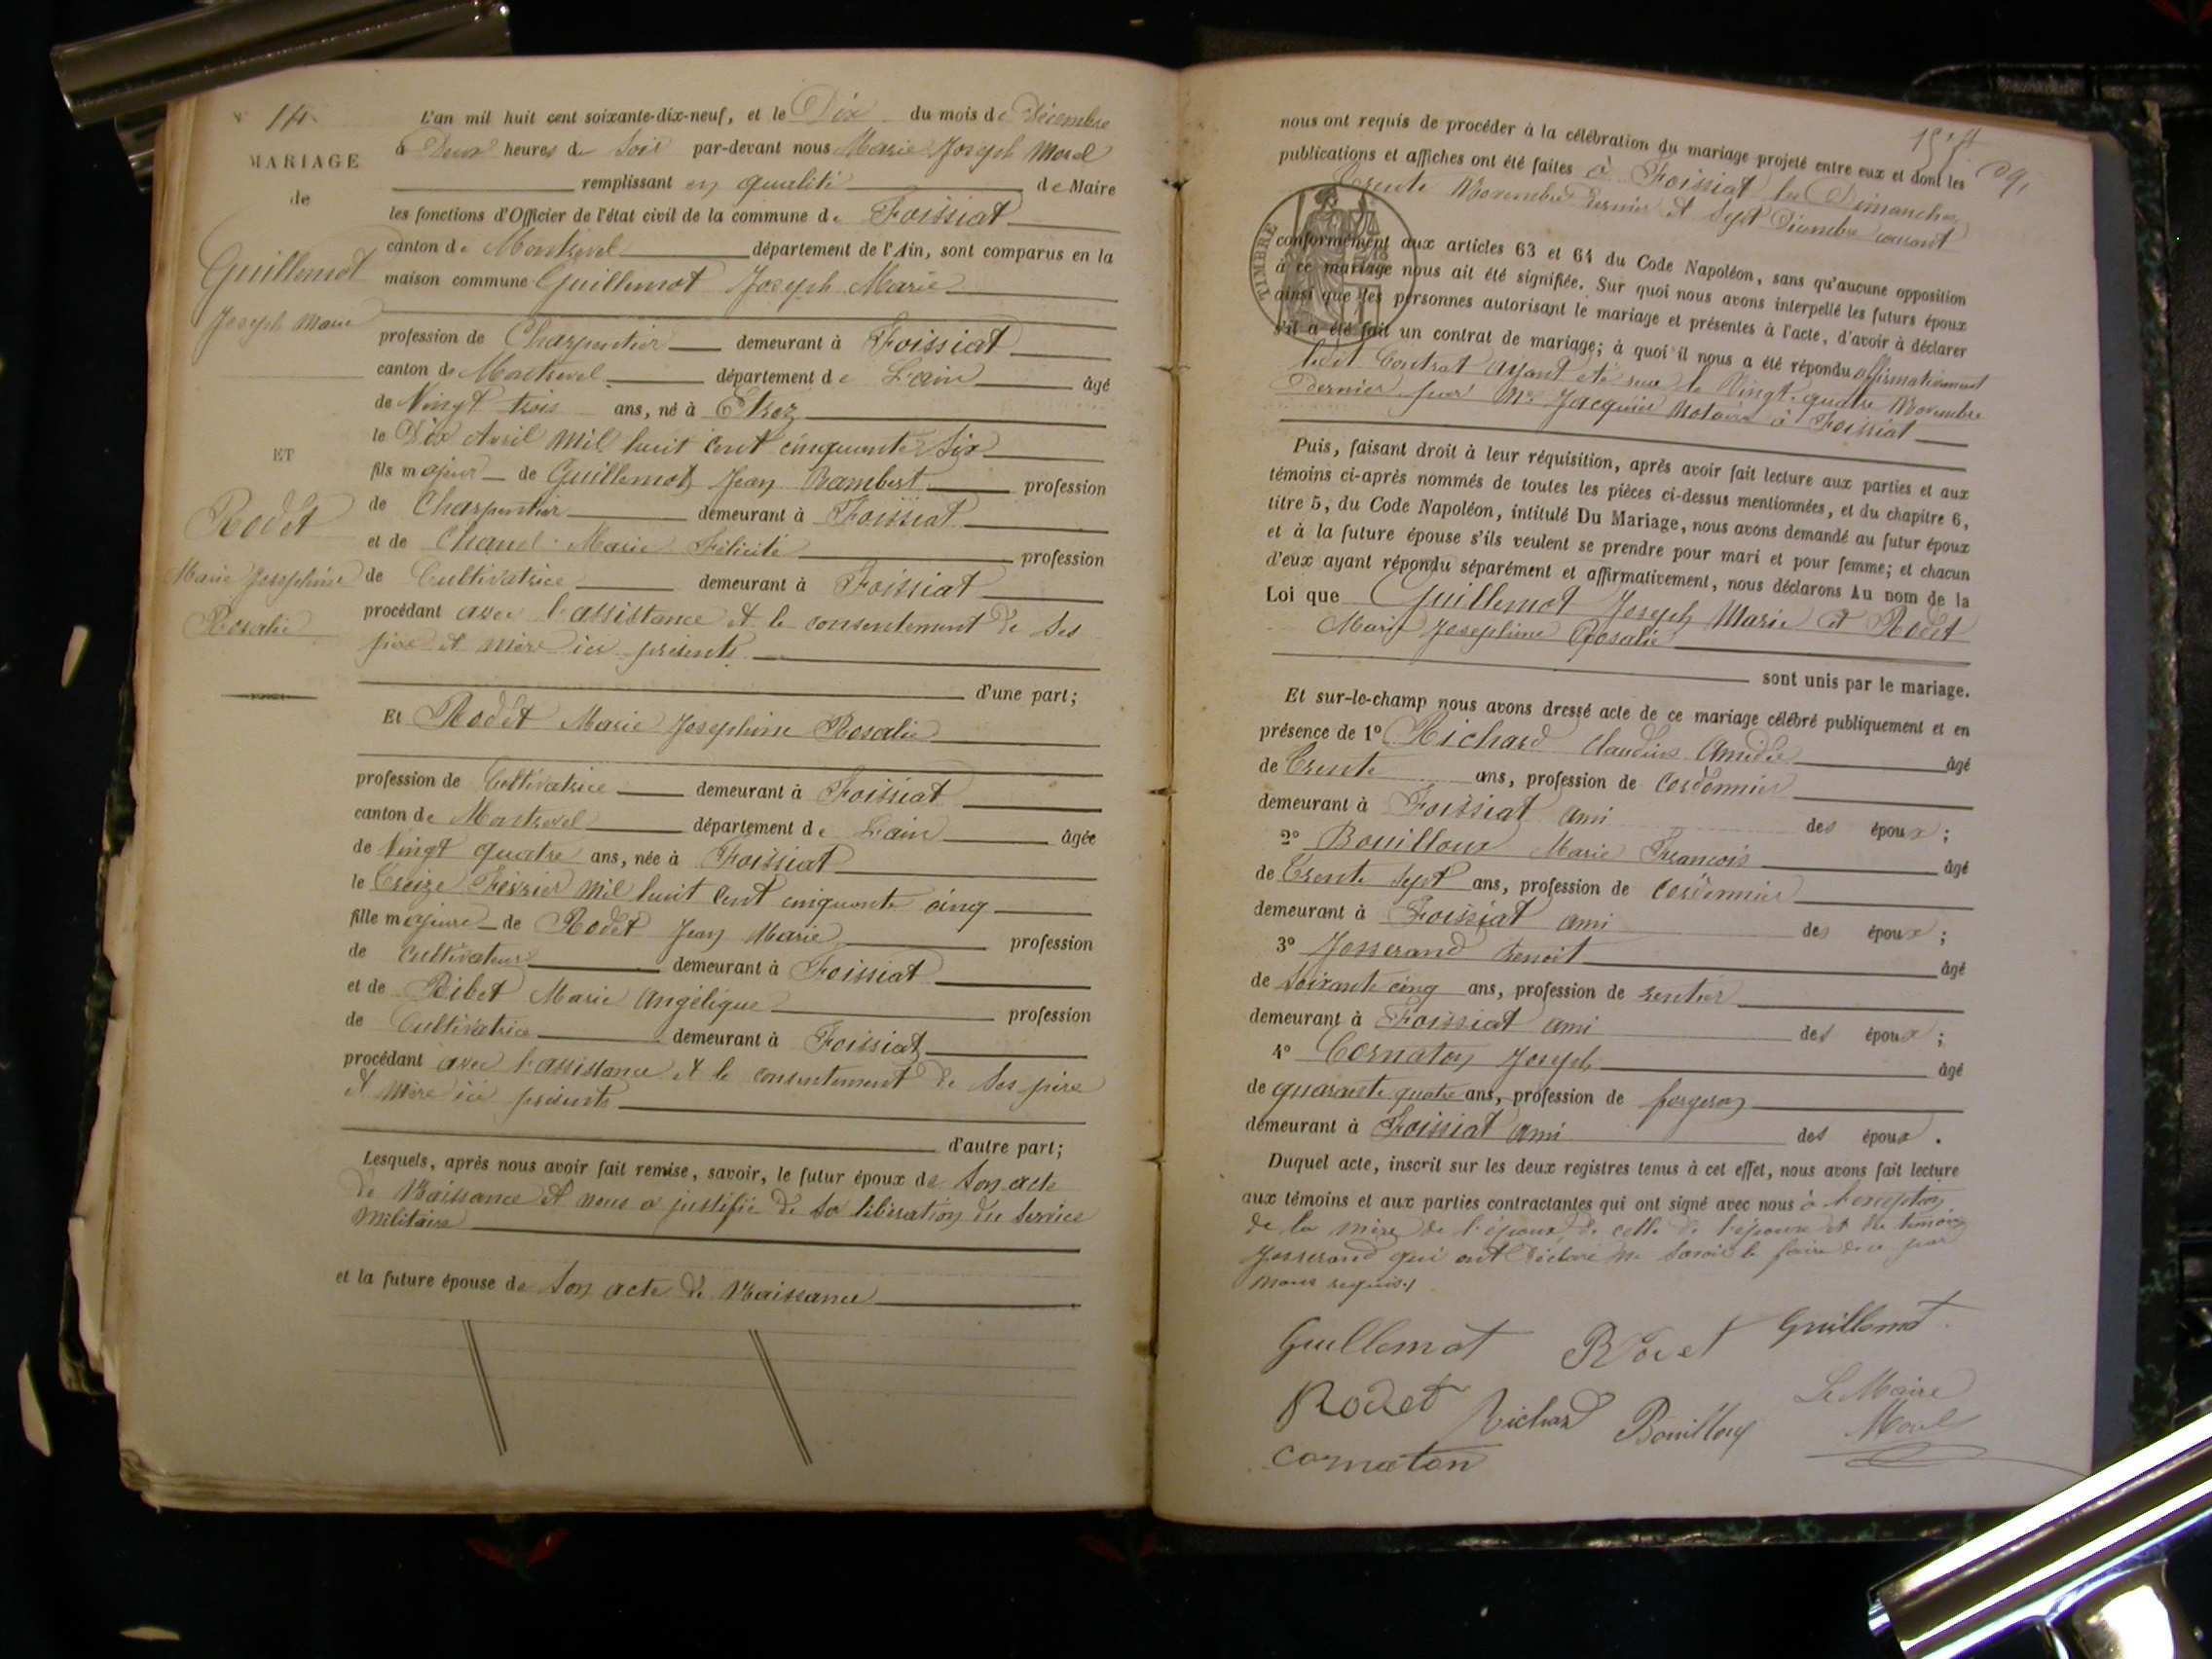 N° 14.
MARIAGE
de
Guillemot
Joseph Marie
ET
Rodet
Marie Josephine
Rosalie
L'an mil huit cent soixante-dix-neuf, et le Dix du mois de Décembre
à Deux heures de Soir par-devant nous Marie Joseph Morel
remplissant en qualité de Maire
les fonctions d'Officier de l'état civil de la commune de Foissiat
canton de Montrevel département de l'Ain, sont comparus en la
maison commune Guillemot Joseph Marie
profession de Charpentier demeurant à Foissiat
canton de Montrevel département de L'ain âgé
de Vingt trois ans, né à Etrez
le Dix Avril mil huit cent cinquante Six
fils majeur de Guillemot Jean Rambert profession
de Charpentier demeurant à Foissiat
et de Chanel Marie Félicité profession
de Cultivatrice demeurant à Foissiat
procédant avec l'assistance et le consentement de Ses
père et mère ici présents
d'une part;
Et Rodet Marie Josephine Rosalie
profession de Cultivatrice demeurant à Foissiat
canton de Montrevel département de L'ain âgée
de Vingt quatre ans, née à Foissiat
le Treize Février mil huit cent cinquante cinq
fille majeure de Rodet Jean Marie profession
de Cultivateur demeurant à Foissiat
et de Ribet Marie Angélique profession
de Cultivatrice demeurant à Foissiat
procédant avec l'assistance et le consentement de Ses père
et Mère ici présents
d'autre part;
Lesquels, après nous avoir fait remise, savoir, le futur époux de Son acte
de Naissance et nous a justifié de Sa libération du Service
Militaire
et la future épouse de Son acte de Naissance
nous ont requis de procéder à la célébration du mariage projeté entre eux et dont les
publications et affiches ont été faites à Foissiat les Dimanches
Trente Novembre Dernier et Sept Décembre courant
TIMBRE
conformément aux articles 63 et 64 du Code Napoléon, sans qu'aucune opposition
à ce mariage nous ait été signifiée. Sur quoi nous avons interpellé les futurs époux
ainsi que les personnes autorisant le mariage et présentes à l'acte, d'avoir à déclarer
s'il a été fait un contrat de mariage; à quoi il nous a été répondu affirmativement
ledit Contrat ayant été reçu le Vingt-quatre Novembre
Dernier par Me Jacquier Notaire à Foissiat
Puis, faisant droit à leur réquisition, après avoir fait lecture aux parties et aux
témoins ci-après nommés de toutes les pièces ci-dessus mentionnées, et du chapitre 6,
titre 5, du Code Napoléon, intitulé Du Mariage, nous avons demandé au futur époux
et à la future épouse s'ils veulent se prendre pour mari et pour femme; et chacun
d'eux ayant répondu séparément et affirmativement, nous déclarons Au nom de la
Loi que Guillemot Joseph Marie et Rodet
Marie Josephine Rosalie
sont unis par le mariage.
Et sur-le-champ nous avons dressé acte de ce mariage célébré publiquement et en
présence de 1° Richard Claudius Amédée âgé
de Trente ans, profession de Cordonnier
demeurant à Foissiat ami des époux;
2° Bouilloux Marie François âgé
de Trente Sept ans, profession de Cordonnier
demeurant à Foissiat ami des époux;
3° Josserand Benoit âgé
de Soixante cinq ans, profession de rentier
demeurant à Foissiat ami des époux;
4° Cornaton Joseph âgé
de quarante quatre ans, profession de forgeron
demeurant à Foissiat ami des époux.
Duquel acte, inscrit sur les deux registres tenus à cet effet, nous avons fait lecture
aux témoins et aux parties contractantes qui ont signé avec nous à l'exception
de la mère de l'époux, de celle de l'épouse et du témoin
Josserand qui ont Déclaré ne Savoir le faire de ce par
nous requis./
Guillemot Rodet Guillemot
Rodet Richard Bouilloux Le Maire
Cornaton Morel